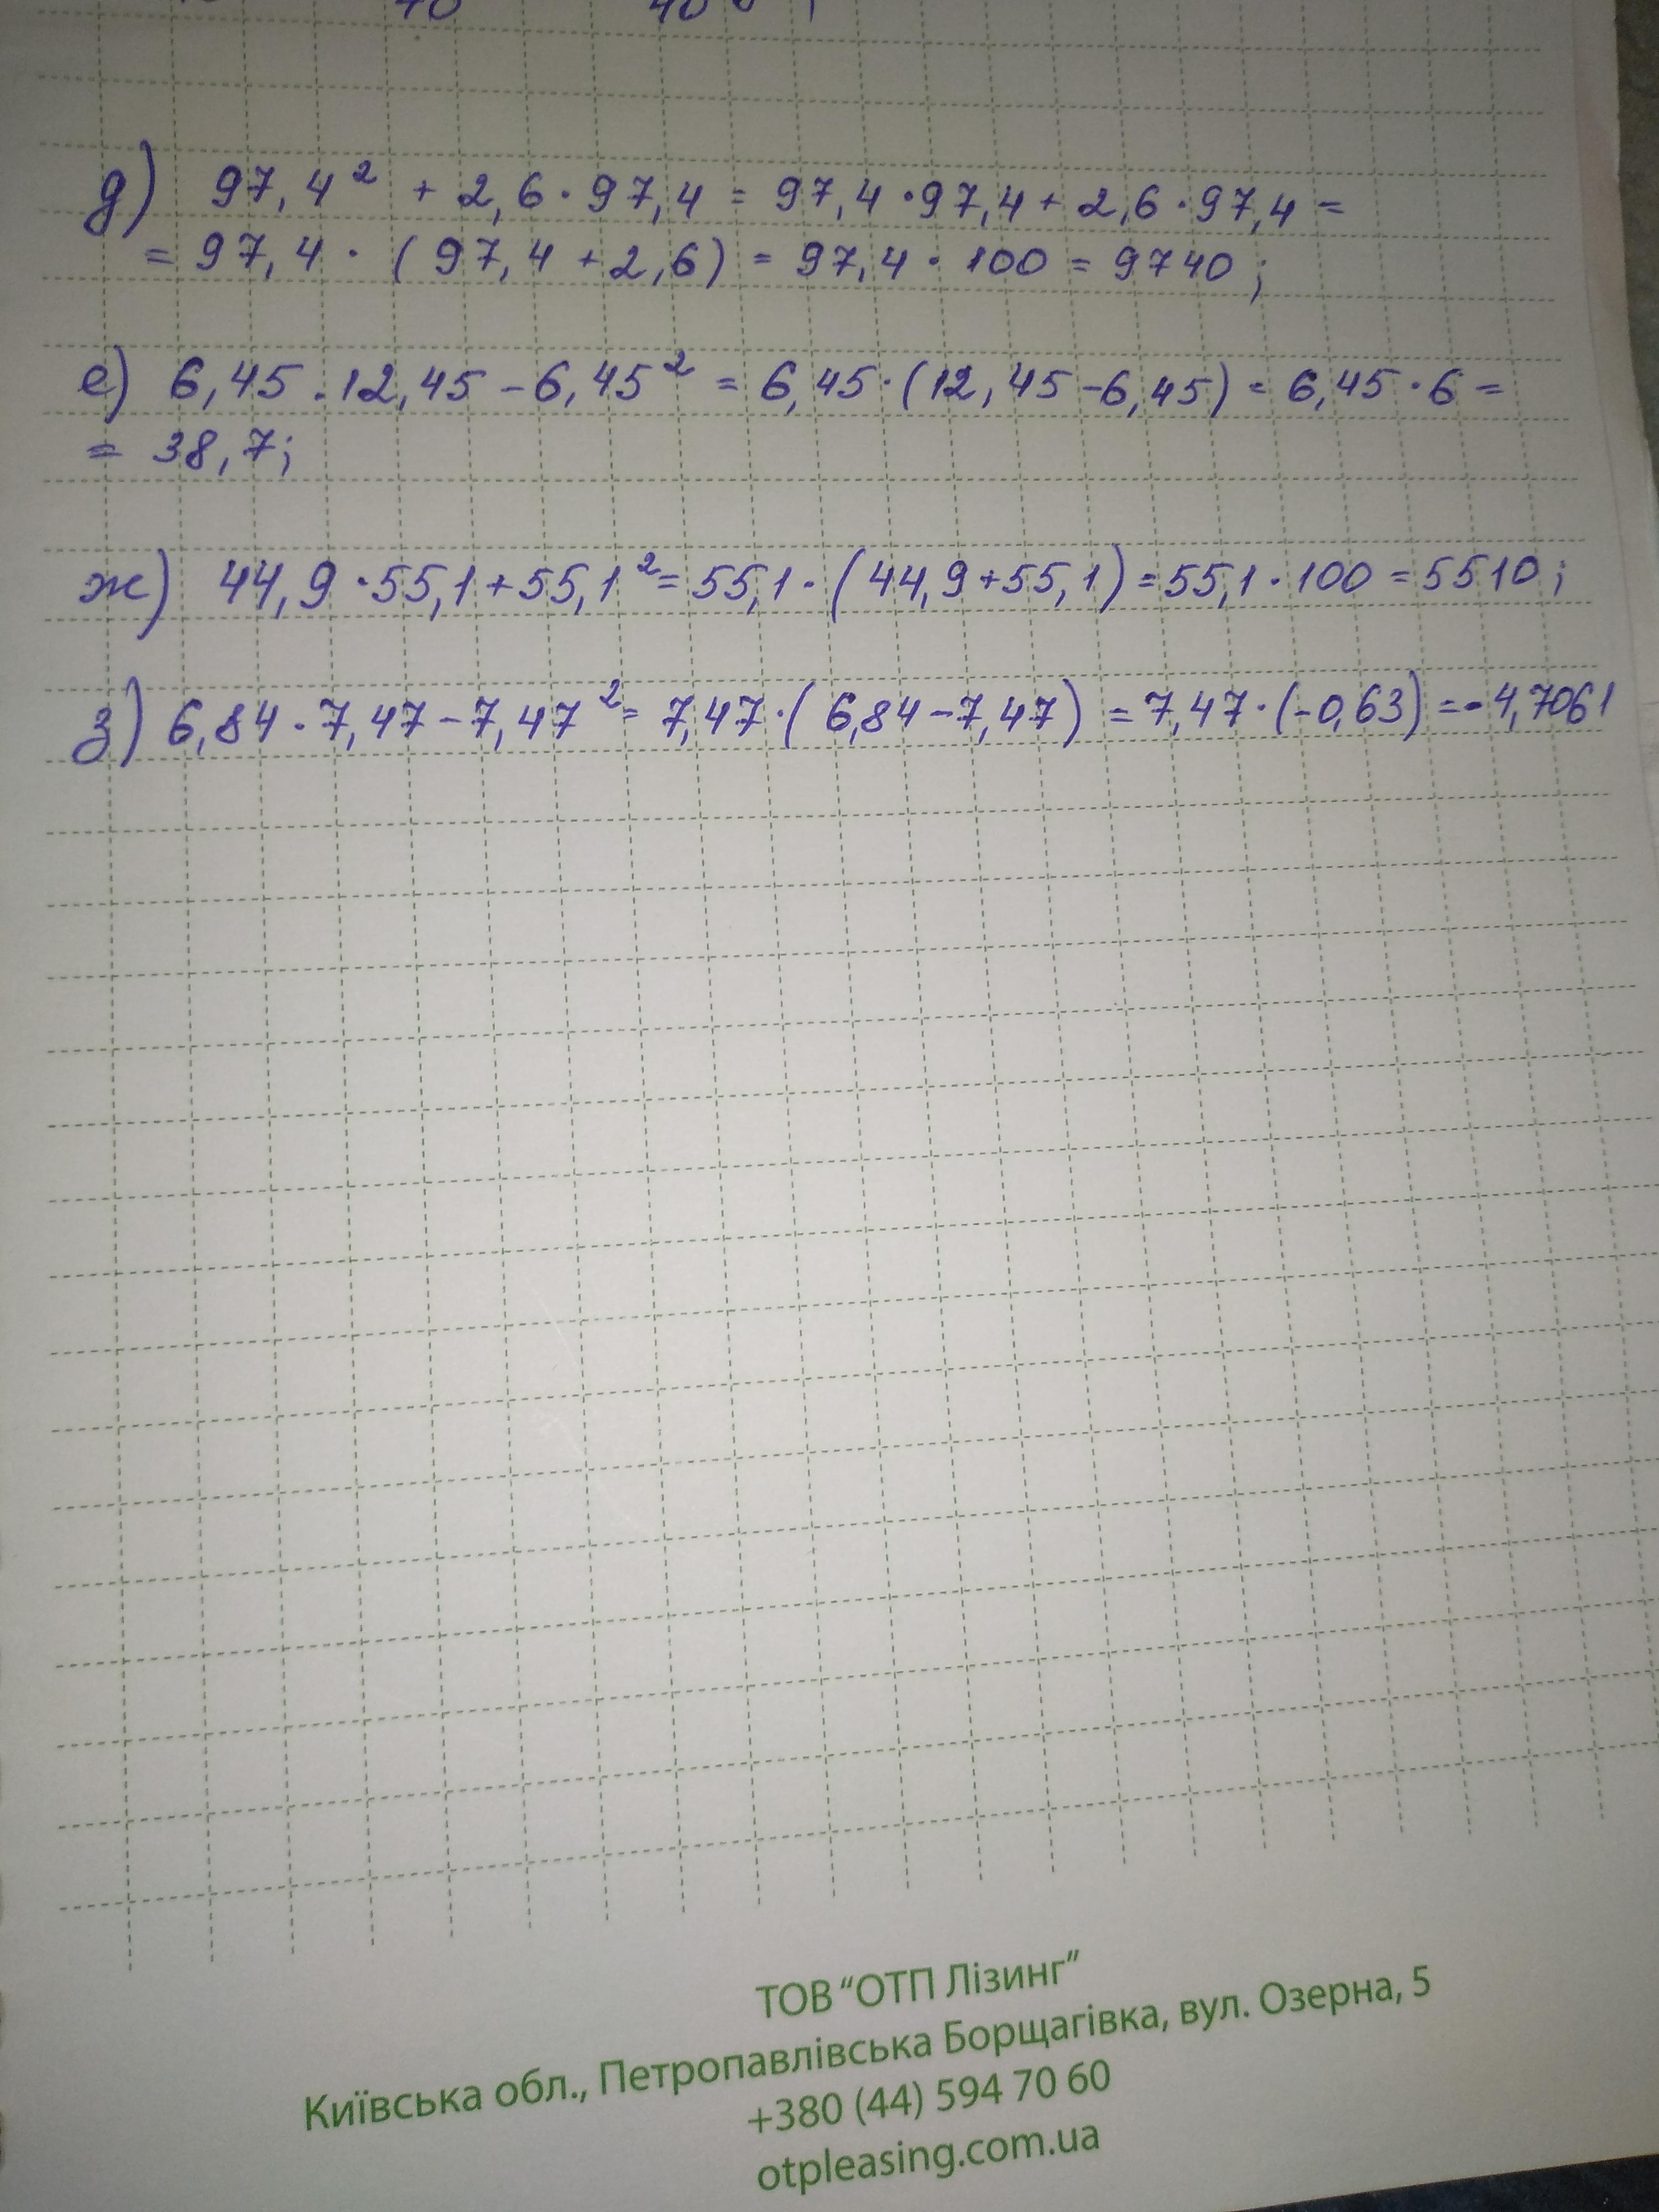 д) 97,4² + 2,6 · 97,4 = 97,4 · 97,4 + 2,6 · 97,4 =
= 97,4 · (97,4 + 2,6) = 97,4 · 100 = 9740;
е) 6,45 · 12,45 - 6,45² = 6,45 · (12,45 - 6,45) = 6,45 · 6 =
= 38,7;
ж) 44,9 · 55,1 + 55,1² = 55,1 · (44,9 + 55,1) = 55,1 · 100 = 5510;
з) 6,84 · 7,47 - 7,47² = 7,47 · (6,84 - 7,47) = 7,47 · (-0,63) = -4,7061
ТОВ “ОТП Лізинг”
Київська обл., Петропавлівська Борщагівка, вул. Озерна, 5
+380 (44) 594 70 60
otpleasing.com.ua